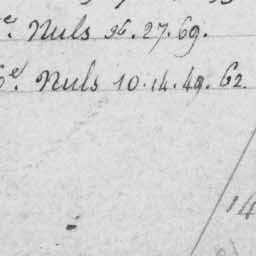 e. Nuls 26. 27. 69.
6e. Nuls 10. 14. 49. 62.
14